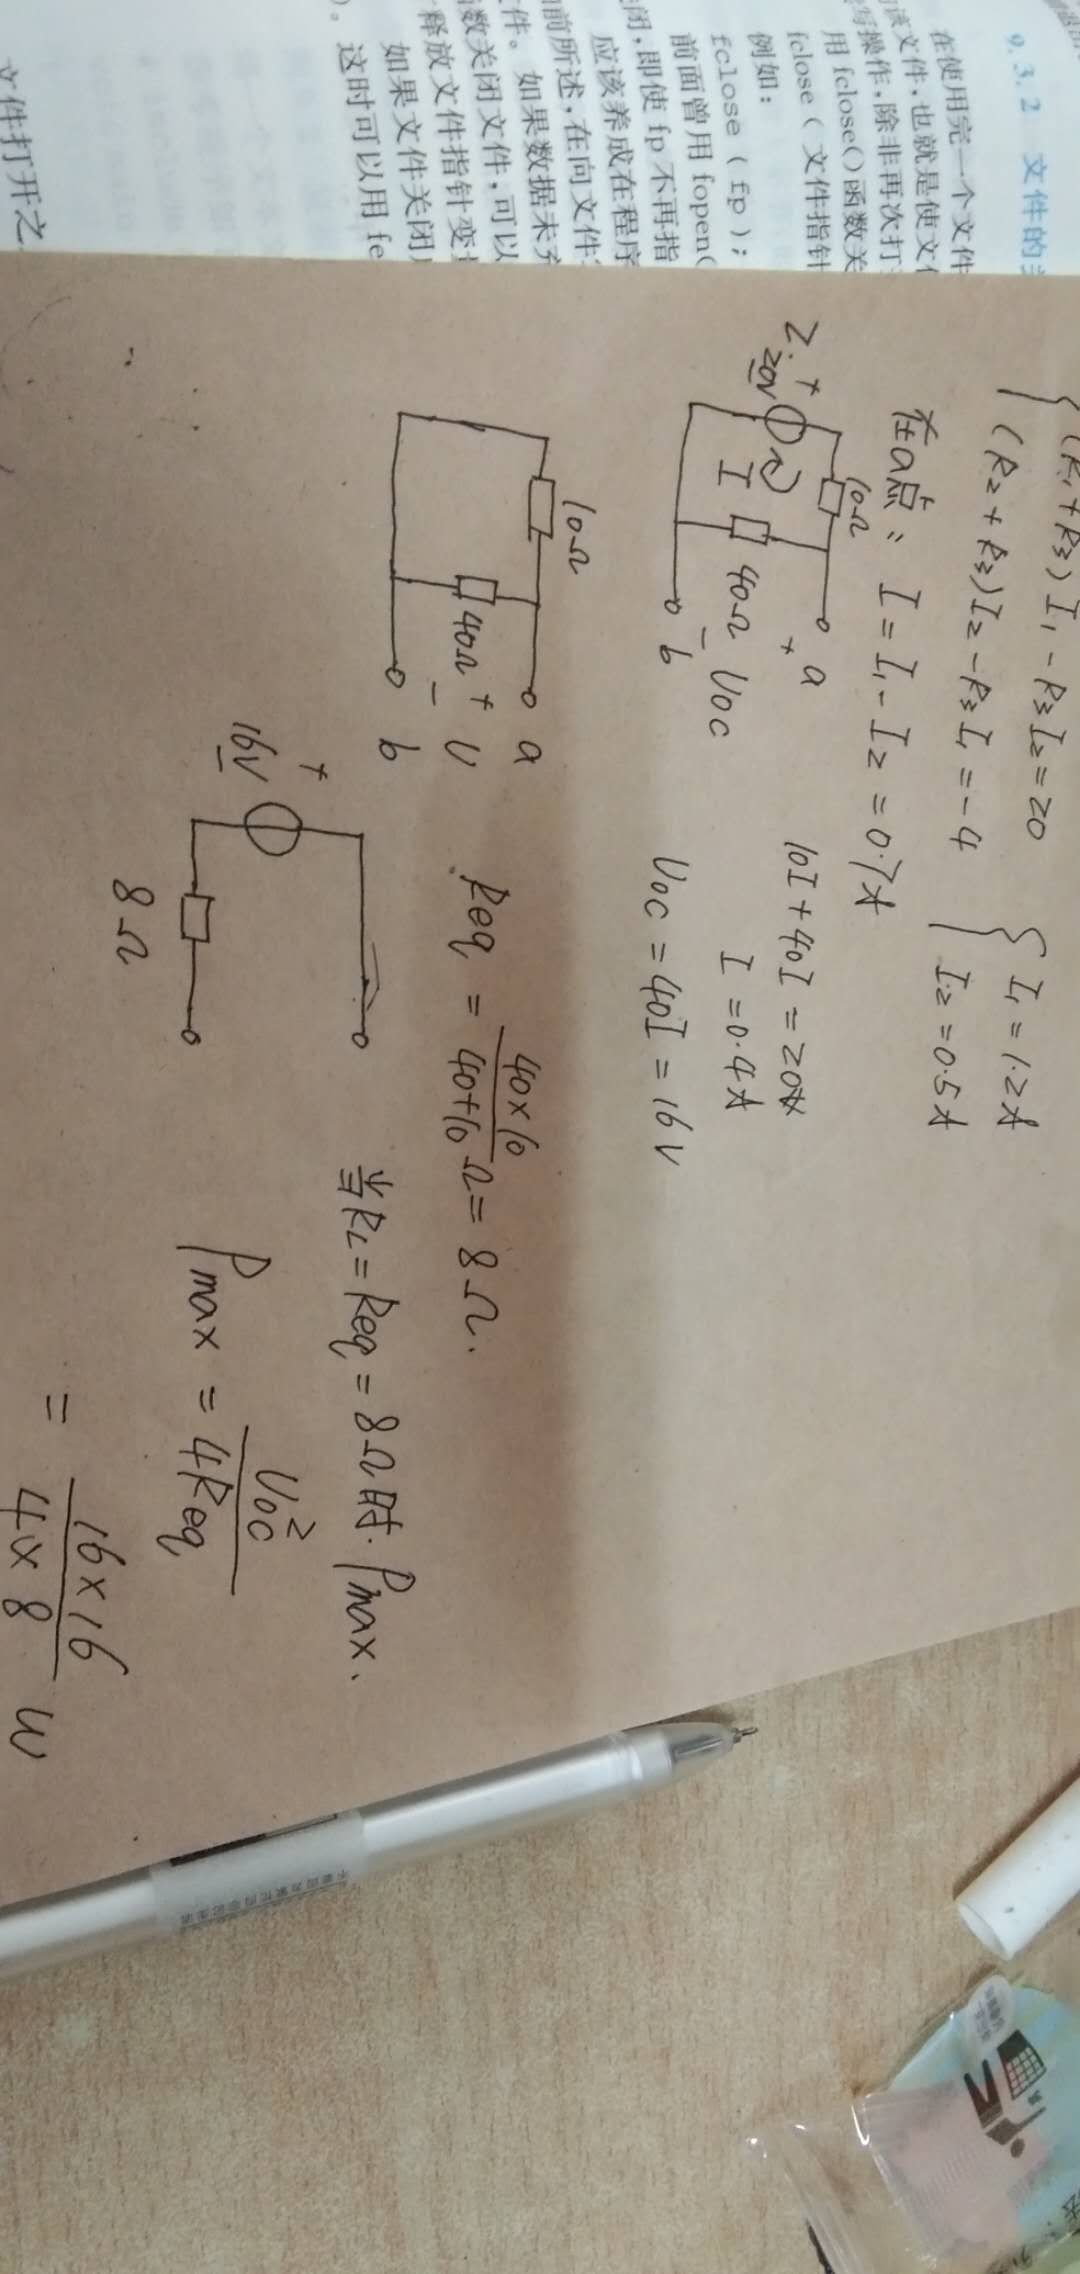 9.3.2 文件的
在使用完一个文件
该文件,也就是使文
写操作,除非再次打
用 fclose()函数关
fclose ( 文件指针
例如:
fclose ( fp );
前面曾用 fopen(
闭,即使 fp 不再指
应该养成在程序
前所述,在向文件
件。如果数据未
函数关闭文件,可以
释放文件指针变
如果文件关闭
)。这时可以用 fe
文件打开之
(R₁+R₃)I₁-R₃I₂=20
(R₂+R₃)I₂-R₃I₁=-4
I₁=1.2A
I₂=0.5A
在a点: I=I₁-I₂=0.7A
2.
10Ω
a
+
20V
-
I
40Ω
+
-
Uoc
b
10I+40I=20V
I=0.4A
Uoc=40I=16V
10Ω
a
40Ω
+
U
-
b
Req = 40×10/40+10 Ω = 8Ω.
+
16V
-
8Ω
当RL=Req=8Ω时. Pmax.
Pmax = Uoc²/4Req
= 16×16/4×8 W